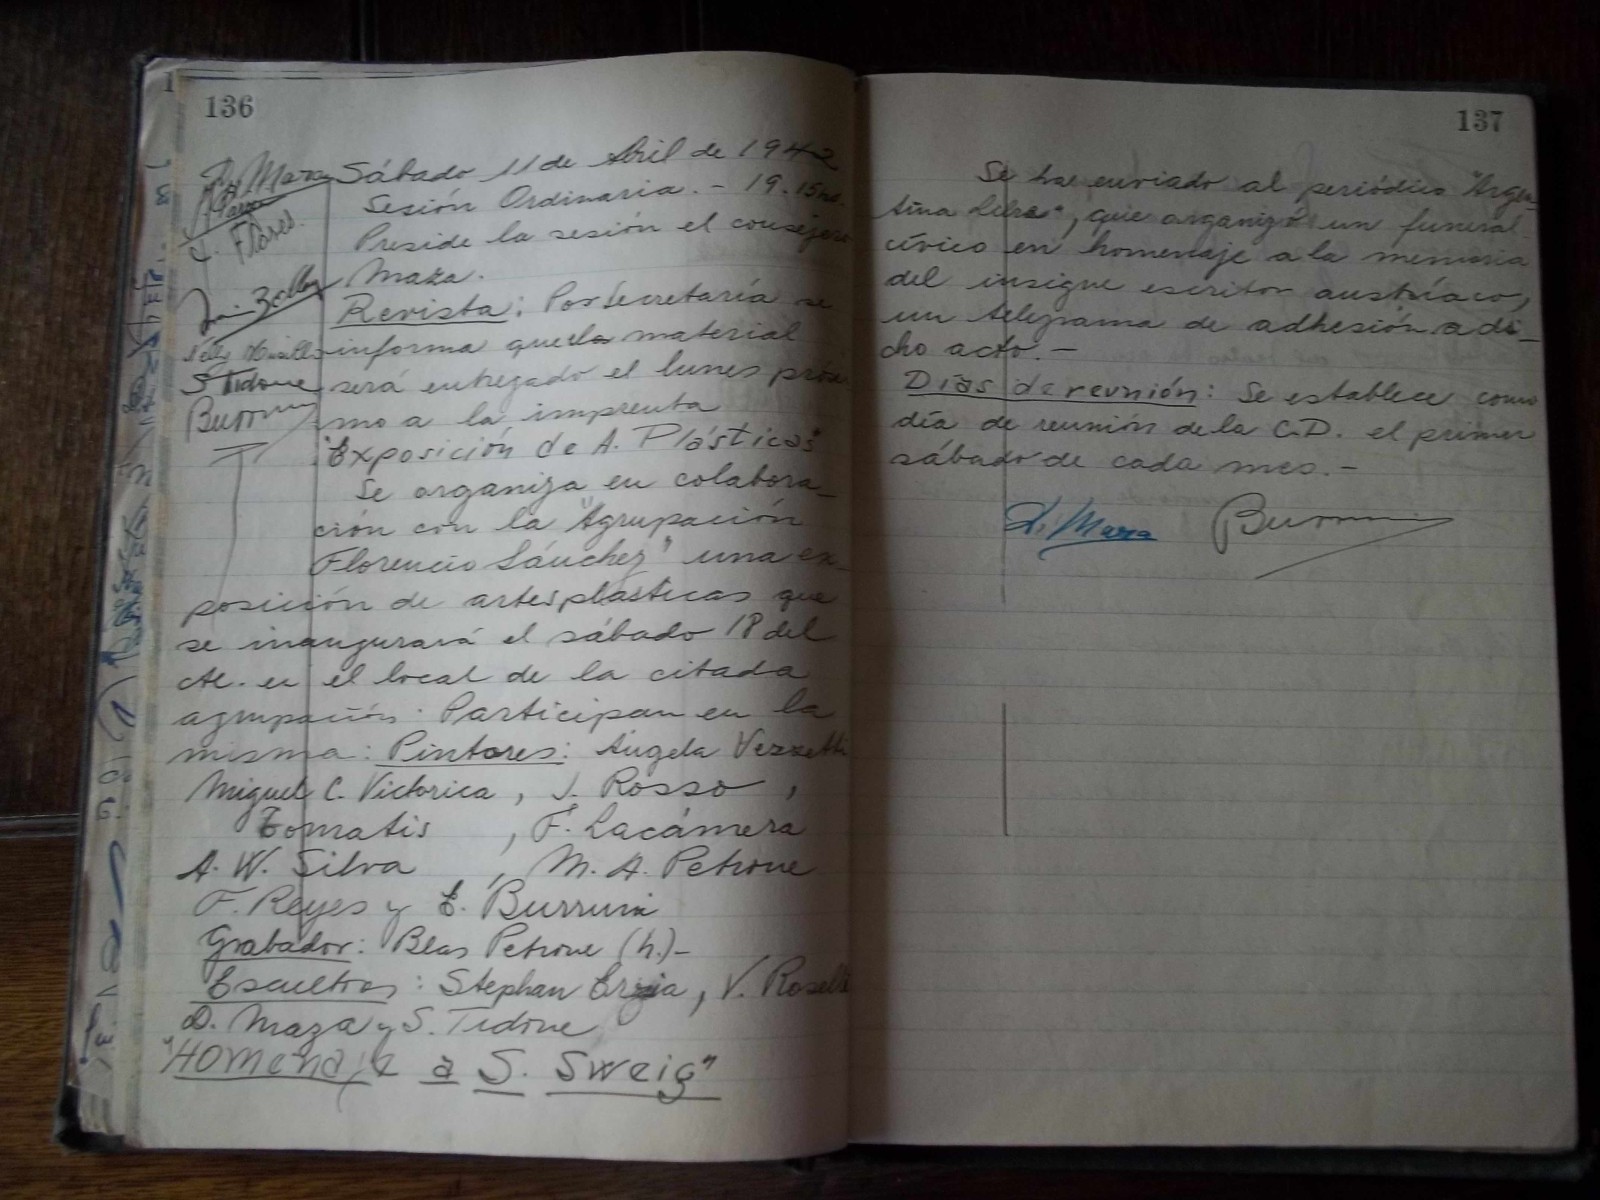 136
D. Maza
J. Flores
Nelly
S Tidone
Burrun
Sábado 11 de Abril de 1942
Sesión Ordinaria. - 19.15 hs.
Preside la sesión el consejero
Maza.
Revista: Por Secretaría se
informa que el material
será entregado el lunes próxi
mo a la imprenta
"Exposición de A. Plásticas"
Se organiza en colabora-
ción con la "Agrupación
Florencio Sánchez" una ex-
posición de artes plásticas que
se inaugurará el sábado 18 del
cte. en el local de la citada
agrupación. Participan en la
misma: Pintores: Angela Vezzetti
Miguel C. Victorica, J. Rosso,
Tomatis, F. Lacámera
A. W. Silva, M. A. Petrone
F. Reyes y E. Burruni
Grabador: Blas Petrone (h.)-
Escultores: Stephan Erzia, V. Roselli
D. Maza y S. Tidone
"Homenaje a S. Sweig"
137
Se ha enviado al periódico "Argen-
tina Libre", que organizó un funeral
cívico en homenaje a la memoria
del insigne escritor austríaco,
un telegrama de adhesión a di-
cho acto. -
Días de reunión: Se establece como
día de reunión de la C.D. el primer
sábado de cada mes. -
D. Maza Burrun